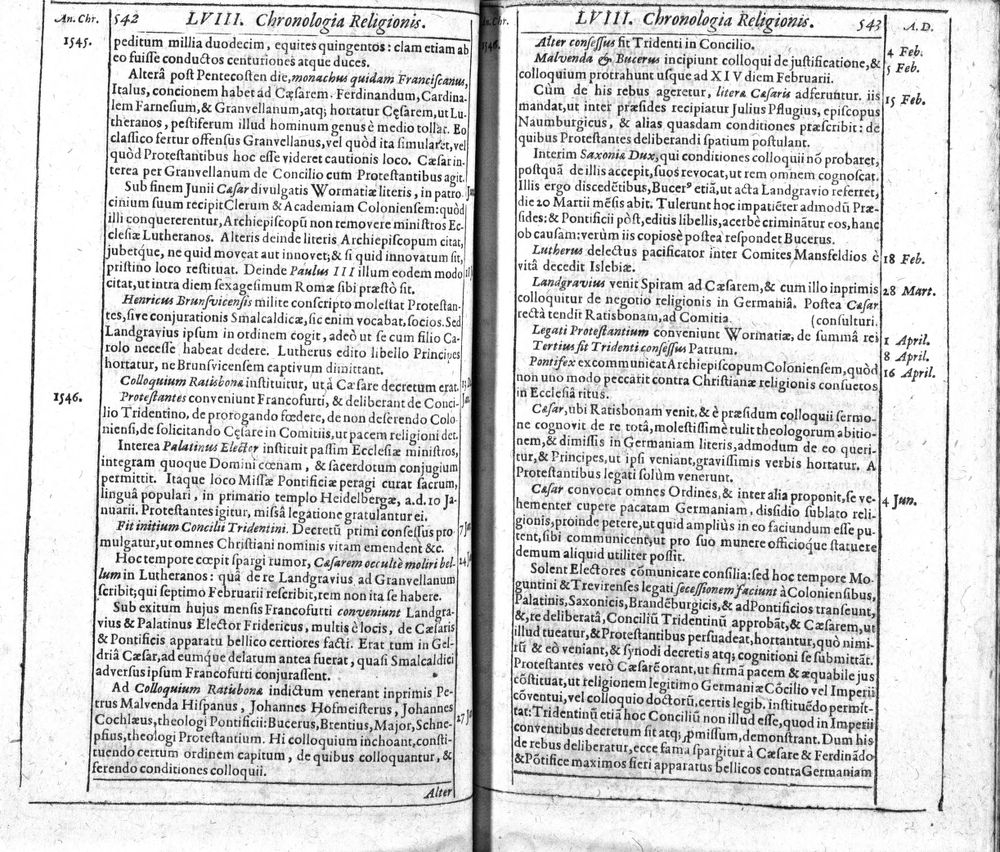 An. Chr. 542 LVIII. Chronologia Religionis.
1545. peditum millia duodecim, equites quingentos: clam etiam ab
eo fuisse conductos centuriones atque duces.
Alterâ post Pentecosten die, monachus quidam Franciscanus,
Italus, concionem habet ad Cęsarem. Ferdinandum, Cardina-
lem Farnesium, & Granvellanum, atq; hortatur Cęsarem, ut Lu-
theranos, pestiferum illud hominum genus è medio tollat. Eo
classico fertur offensus Granvellanus, vel quòd ita simularet, vel
quòd Protestantibus hoc esse videret cautionis loco. Cæsar in-
terea per Granvellanum de Concilio cum Protestantibus agit.
Sub finem Junii Cæsar divulgatis Wormatiæ literis, in patro-
cinium suum recipit Clerum & Academiam Coloniensem: quòd
illi conquererentur, Archiepiscopũ non removere ministros Ec-
clesiæ Lutheranos. Alteris deinde literis Archiepiscopum citat,
jubetque, ne quid moveat aut innovet; & si quid innovatum sit,
pristino loco restituat. Deinde Paulus III illum eodem modo
citat, ut intra diem sexagesimum Romæ sibi præstò sit.
Henricus Brunsvicensis milite conscripto molestat Protestan-
tes, sive conjurationis Smalcaldicæ, sic enim vocabat, socios. Sed
Landgravius ipsum in ordinem cogit, adeò ut se cum filio Ca-
rolo necesse habeat dedere. Lutherus edito libello Principes
hortatur, ne Brunsvicensem captivum dimittant.
Colloquium Ratisbonæ instituitur, ut à Cæsare decretum erat.
1546. Protestantes conveniunt Francofurti, & deliberant de Conci-
lio Tridentino, de prorogando fœdere, de non deserendo Colo-
niensi, de solicitando Cęsare in Comitiis, ut pacem religioni det.
Interea Palatinus Elector instituit passim Ecclesiæ ministros,
integram quoque Domini cœnam, & sacerdotum conjugium
permittit. Itaque loco Missæ Pontificiæ peragi curat sacrum,
linguâ populari, in primatio templo Heidelbergæ, a.d. 10 Ja-
nuarii. Protestantes igitur, missâ legatione gratulantur ei.
Fit initium Concilii Tridentini. Decretũ primi consessus pro-
mulgatur, ut omnes Christiani nominis vitam emendent &c.
Hoc tempore cœpit spargi rumor, Cæsarem occultè moliri bel-
lum in Lutheranos: quâ de re Landgravius ad Granvellanum
scribit; qui septimo Februarii rescribit, rem non ita se habere.
Sub exitum hujus mensis Francofurti conveniunt Landgra-
vius & Palatinus Elector Fridericus, multis è locis, de Cæsaris
& Pontificis apparatu bellico certiores facti. Erat tum in Gel-
driâ Cæsar, ad eumque delatum antea fuerat, quasi Smalcaldici
adversus ipsum Francofurti conjurassent.
Ad Colloquium Ratisbonæ indictum venerant inprimis Pe-
trus Malvenda Hispanus, Johannes Hofmeisterus, Johannes
Cochlæus, theologi Pontificii: Bucerus, Brentius, Major, Schne-
pfius, theologi Protestantium. Hi colloquium inchoant, consti-
tuendo certum ordinem capitum, de quibus colloquantur, &
ferendo conditiones colloquii.
Alter
LVIII. Chronologia Religionis. 543 A.D.
Alter consessus fit Tridenti in Concilio. 4 Feb.
Malvenda & Bucerus incipiunt colloqui de justificatione, & 5 Feb.
colloquium protrahunt usque ad XIV diem Februarii.
Cùm de his rebus ageretur, literæ Cæsaris adferuntur. iis 15 Feb.
mandat, ut inter præsides recipiatur Julius Pflugius, episcopus
Naumburgicus, & alias quasdam conditiones præscribit: de
quibus Protestantes deliberandi spatium postulant.
Interim Saxoniæ Dux, qui conditiones colloquii nõ probaret,
postquã de illis accepit, suos revocat, ut rem omnem cognoscat.
Illis ergo discedẽtibus, Bucerꝰ etiã, ut acta Landgravio referret,
die 20 Martii mẽsis abit. Tulerunt hoc impatiẽter admodũ Præ-
sides: & Pontificii pòst, editis libellis, acerbè criminãtur eos, hanc
ob causam: verùm iis copiosè postea respondet Bucerus.
Lutherus delectus pacificator inter Comites Mansfeldios è 18 Feb.
vitâ decedit Islebiæ.
Landgravius venit Spiram ad Cæsarem, & cum illo inprimis 28 Mart.
colloquitur de negotio religionis in Germaniâ. Postea Cæsar
rectà tendit Ratisbonam, ad Comitia. (consulturi.
Legati Protestantium conveniunt Wormatiæ, de summâ rei 1 April.
Tertius fit Tridenti consessus Patrum. 8 April.
Pontifex excommunicat Archiepiscopum Coloniensem, quòd 16 April.
non uno modo peccarit contra Christianæ religionis consuetos
in Ecclesiâ ritus.
Cæsar, ubi Ratisbonam venit, & è præsidum colloquii sermo-
ne cognovit de re totâ, molestissimè tulit theologorum abitio-
nem, & dimissis in Germaniam literis, admodum de eo queri-
tur, & Principes, ut ipsi veniant, gravissimis verbis hortatur. A
Protestantibus legati solùm venerunt.
Cæsar convocat omnes Ordines, & inter alia proponit, se ve- 4 Jun.
hementer cupere pacatam Germaniam, dissidio sublato reli-
gionis, proinde petere, ut quid ampliùs in eo faciundum esse pu-
tent, sibi communicent, ut pro suo munere officioque statuere
demum aliquid utiliter possit.
Solent Electores cõmunicare consilia: sed hoc tempore Mo-
guntini & Trevirenses legati secessionem faciunt à Coloniensibus,
Palatinis, Saxonicis, Brandẽburgicis, & ad Pontificios transeunt,
&, re deliberatâ, Conciliũ Tridentinũ approbãt, & Cæsarem, ut
illud tueatur, & Protestantibus persuadeat, hortantur, quò nimi-
rũ & eò veniant, & synodi decretis atq; cognitioni se submittãt.
Protestantes verò Cæsarẽ orant, ut firmâ pacem & æquabile jus
cõstituat, ut religionem legitimo Germaniæ Cõcilio vel Imperii
cõventui, vel colloquio doctorũ, certis legib. instituẽdo permit-
tat: Tridentinũ etiã hoc Conciliũ non illud esse, quod in Imperii
conventibus decretum sit atq; ꝓmissum, demonstrant. Dum his
de rebus deliberatur, ecce fama spargitur à Cæsare & Ferdinãdo
& Põtifice maximos fieri apparatus bellicos contra Germaniam